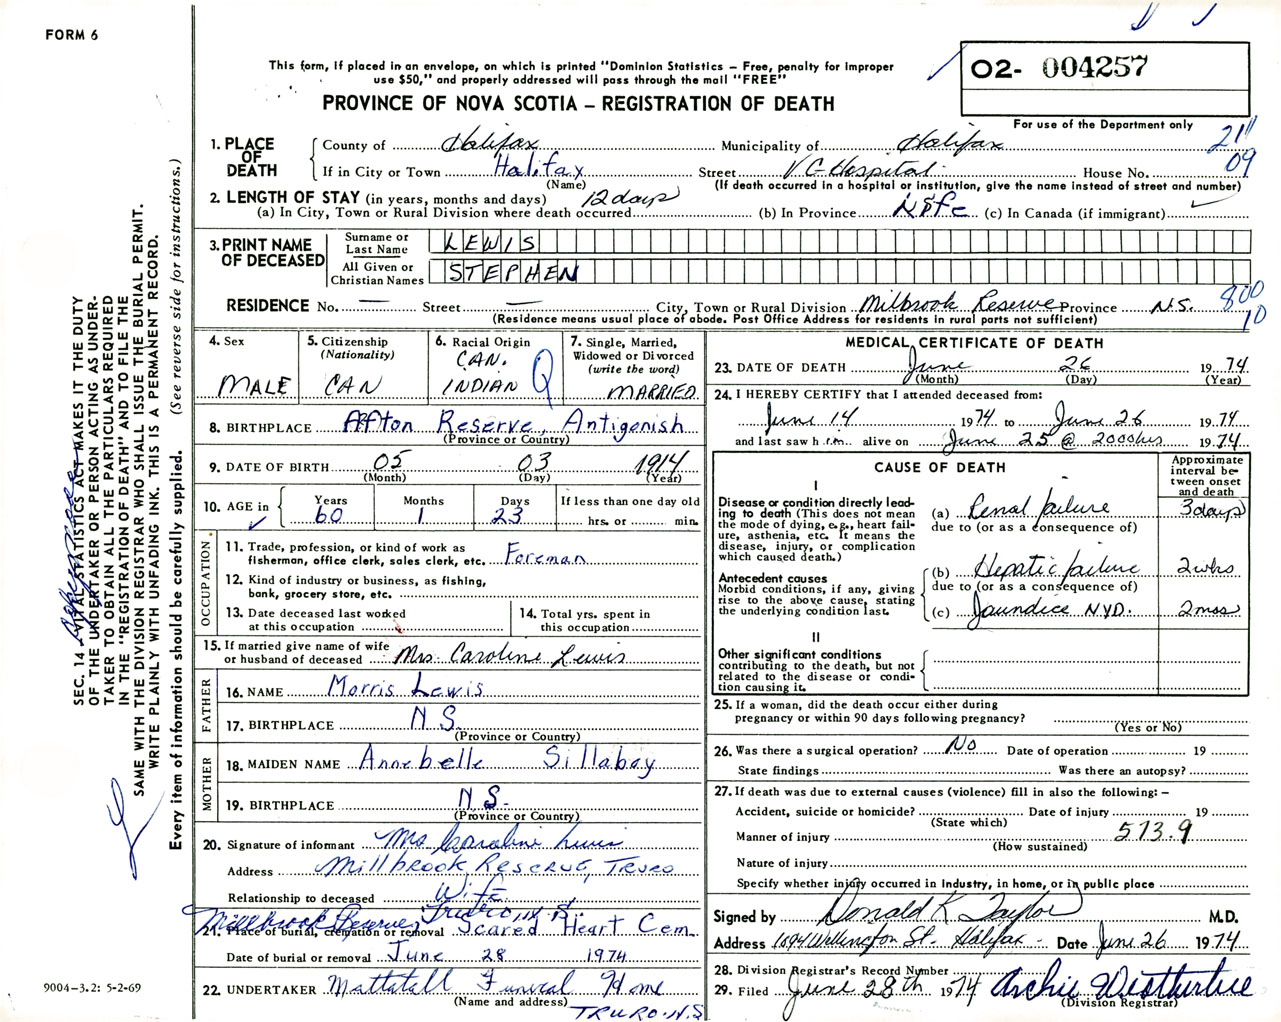 FORM 6
This form, if placed in an envelope, on which is printed "Dominion Statistics – Free, penalty for improper
use $50," and properly addressed will pass through the mail "FREE"
02- 004257
PROVINCE OF NOVA SCOTIA – REGISTRATION OF DEATH
For use of the Department only
21
09
1. PLACE OF DEATH
County of Halifax Municipality of Halifax
If in City or Town Halifax Street V G Hospital House No.
(Name) (If death occurred in a hospital or institution, give the name instead of street and number)
2. LENGTH OF STAY (in years, months and days) 12 days
(a) In City, Town or Rural Division where death occurred (b) In Province Life (c) In Canada (if immigrant)
3. PRINT NAME OF DECEASED
Surname or Last Name LEWIS
All Given or Christian Names STEPHEN
RESIDENCE No. — Street — City, Town or Rural Division Milbrook Reserve Province N.S.
800
10
(Residence means usual place of abode. Post Office Address for residents in rural parts not sufficient)
4. Sex
MALE
5. Citizenship
(Nationality)
CAN
6. Racial Origin
CAN.
INDIAN
7. Single, Married,
Widowed or Divorced
(write the word)
MARRIED
8. BIRTHPLACE Afton Reserve, Antigonish
(Province or Country)
9. DATE OF BIRTH 05 03 1914
(Month) (Day) (Year)
10. AGE in
Years Months Days If less than one day old
60 1 23 hrs. or min.
OCCUPATION
11. Trade, profession, or kind of work as
fisherman, office clerk, sales clerk, etc. Foreman
12. Kind of industry or business, as fishing,
bank, grocery store, etc.
13. Date deceased last worked
at this occupation
14. Total yrs. spent in
this occupation
15. If married give name of wife
or husband of deceased Mrs. Caroline Lewis
FATHER
16. NAME Morris Lewis
17. BIRTHPLACE N S.
(Province or Country)
MOTHER
18. MAIDEN NAME Annebelle Sillaboy
19. BIRTHPLACE N S.
(Province or Country)
20. Signature of informant Mrs Caroline Lewis
Address Millbrook Reserve, Truro
Relationship to deceased Wife
Millbrook Reserve, Truro, N.S.
21. Place of burial, cremation or removal Scared Heart Cem
Date of burial or removal June 28 1974
22. UNDERTAKER Mattatall Funeral Home
(Name and address)
TRURO. N.S
MEDICAL CERTIFICATE OF DEATH
23. DATE OF DEATH June 26 1974
(Month) (Day) (Year)
24. I HEREBY CERTIFY that I attended deceased from:
June 14 1974 to June 26 1974
and last saw h im alive on June 25 @ 2000hrs 1974
CAUSE OF DEATH
Approximate
interval be-
tween onset
and death
I
Disease or condition directly lead-
ing to death (This does not mean
the mode of dying, e.g., heart fail-
ure, asthenia, etc. It means the
disease, injury, or complication
which caused death.)
(a) Renal failure 3 days
due to (or as a consequence of)
Antecedent causes
Morbid conditions, if any, giving
rise to the above cause, stating
the underlying condition last.
(b) Hepatic failure 2 wks
due to (or as a consequence of)
(c) Jaundice NYD. 2 mos
II
Other significant conditions
contributing to the death, but not
related to the disease or condi-
tion causing it.
25. If a woman, did the death occur either during
pregnancy or within 90 days following pregnancy?
(Yes or No)
26. Was there a surgical operation? No Date of operation 19
State findings Was there an autopsy?
27. If death was due to external causes (violence) fill in also the following: –
Accident, suicide or homicide? Date of injury 19
(State which)
573.9
Manner of injury
(How sustained)
Nature of injury
Specify whether injury occurred in industry, in home, or in public place
Signed by Donald K Taylor M.D.
Address 1094 Wellington St. Halifax Date June 26 1974
28. Division Registrar's Record Number
29. Filed June 28th 1974 Archie Westhertree
(Division Registrar)
SEC. 14 – VITAL STATISTICS ACT MAKES IT THE DUTY
OF THE UNDERTAKER OR PERSON ACTING AS UNDER-
TAKER TO OBTAIN ALL THE PARTICULARS REQUIRED
IN THE "REGISTRATION OF DEATH" AND TO FILE THE
SAME WITH THE DIVISION REGISTRAR WHO SHALL ISSUE THE BURIAL PERMIT.
WRITE PLAINLY WITH UNFADING INK. THIS IS A PERMANENT RECORD.
Every item of information should be carefully supplied. (See reverse side for instructions.)
9004–3.2: 5-2-69